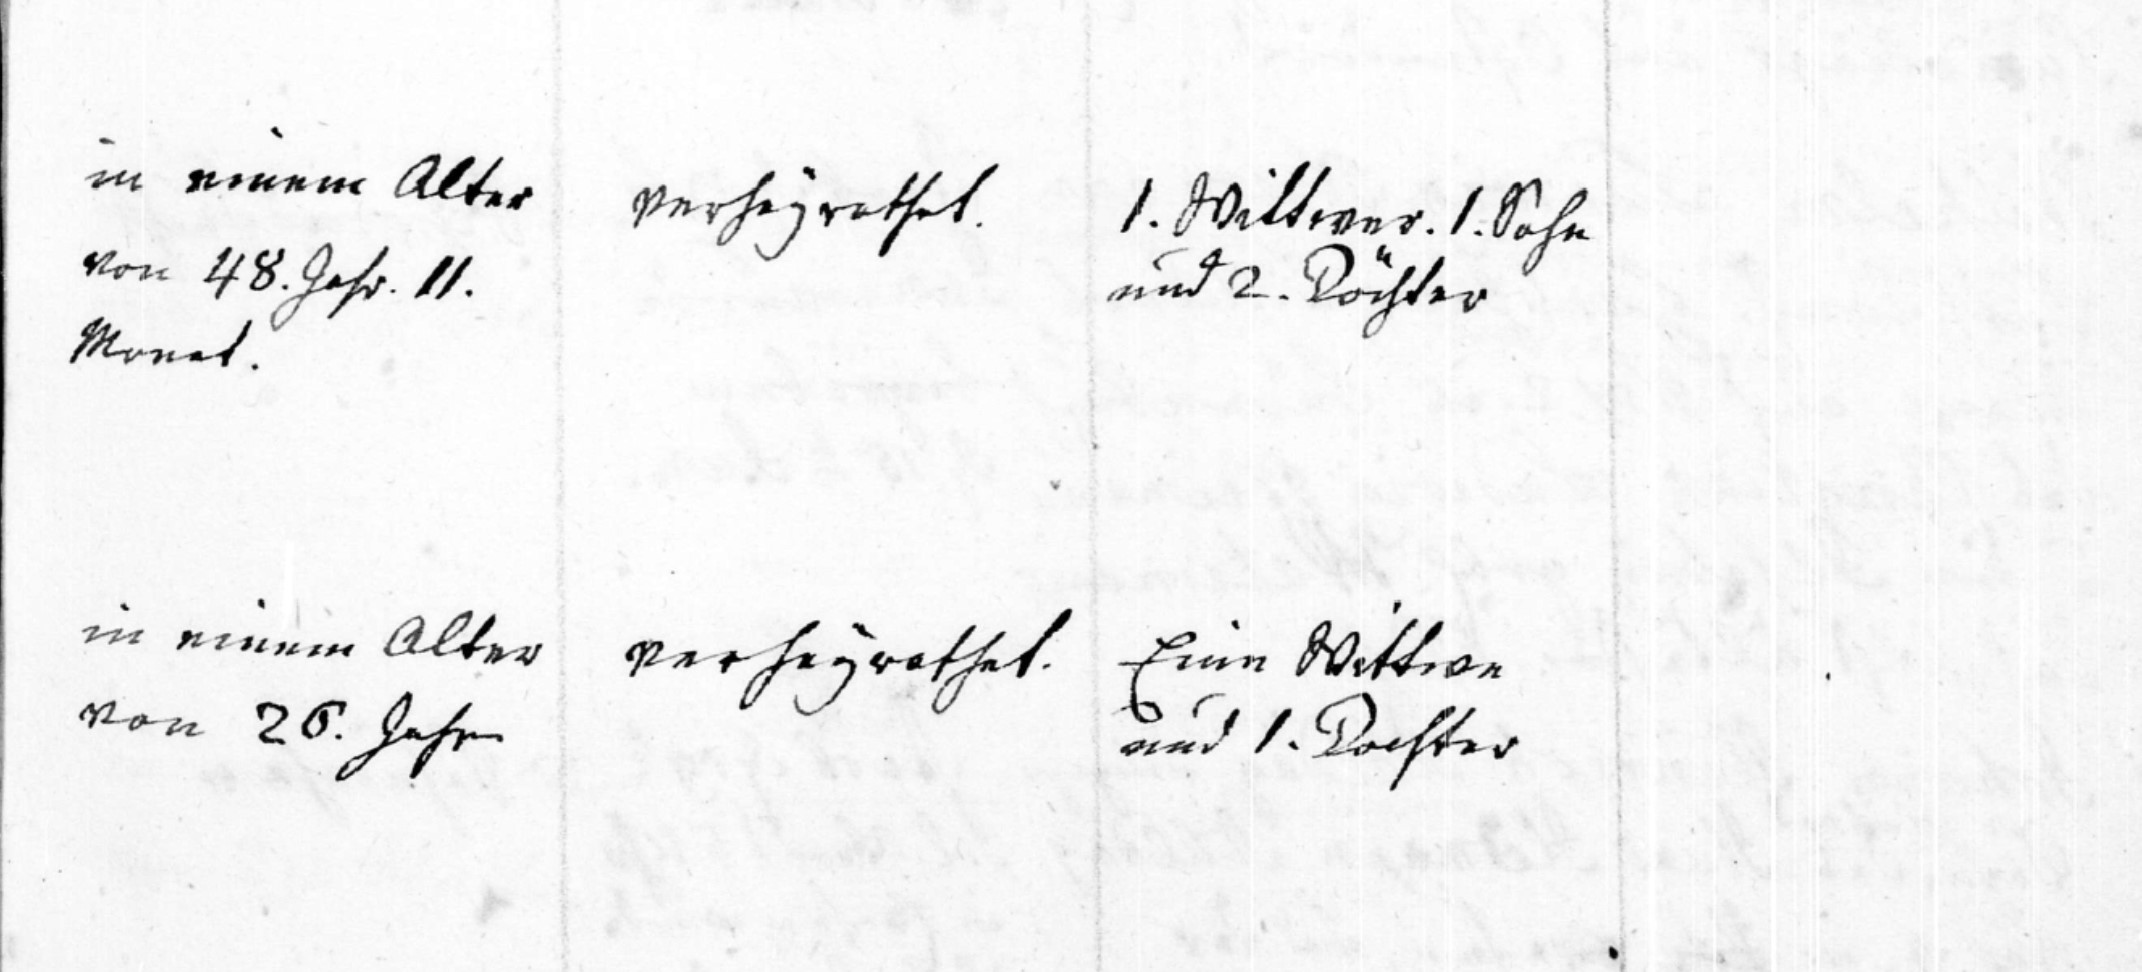 in einem Alter
von 48. Jahr. 11.
Monat.
verheÿrathet.
1. Wittwer. 1. Sohn
und 2. Töchter
in einem Alter
von 26. Jahr
verheÿrathet.
Eine Wittwe
und 1. Tochter